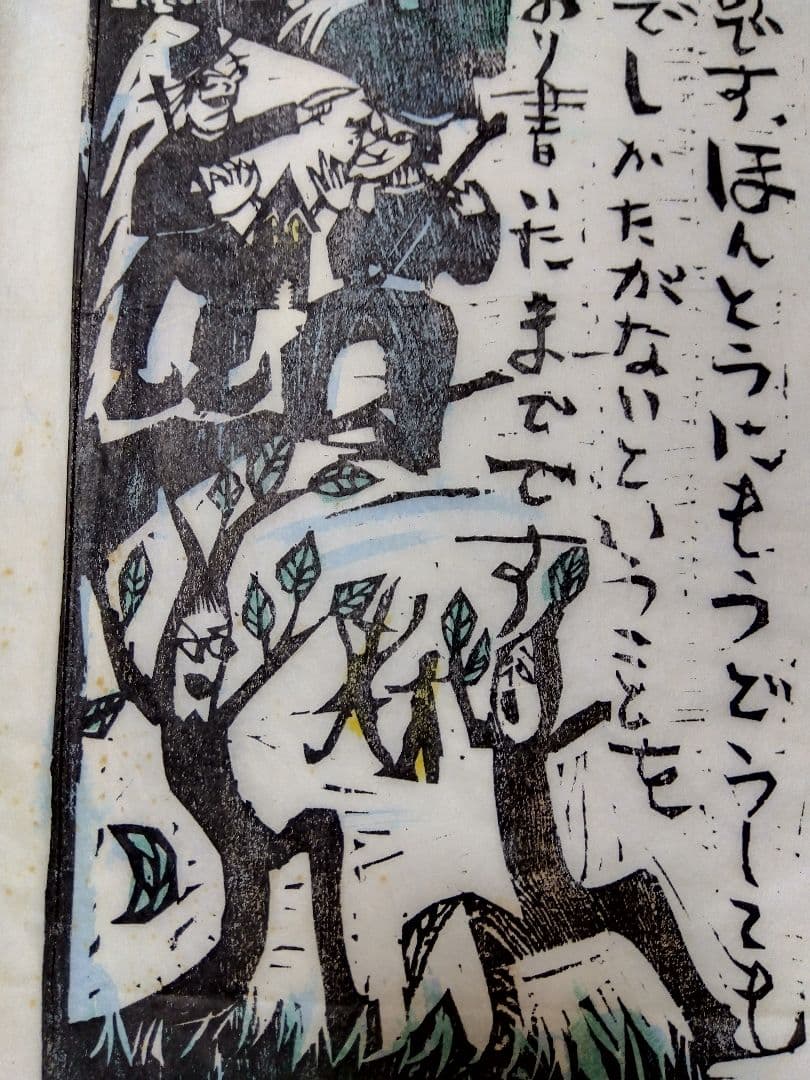 です、ほんとうにもうどうしても
でしかたがないということを
おり書いたまでです